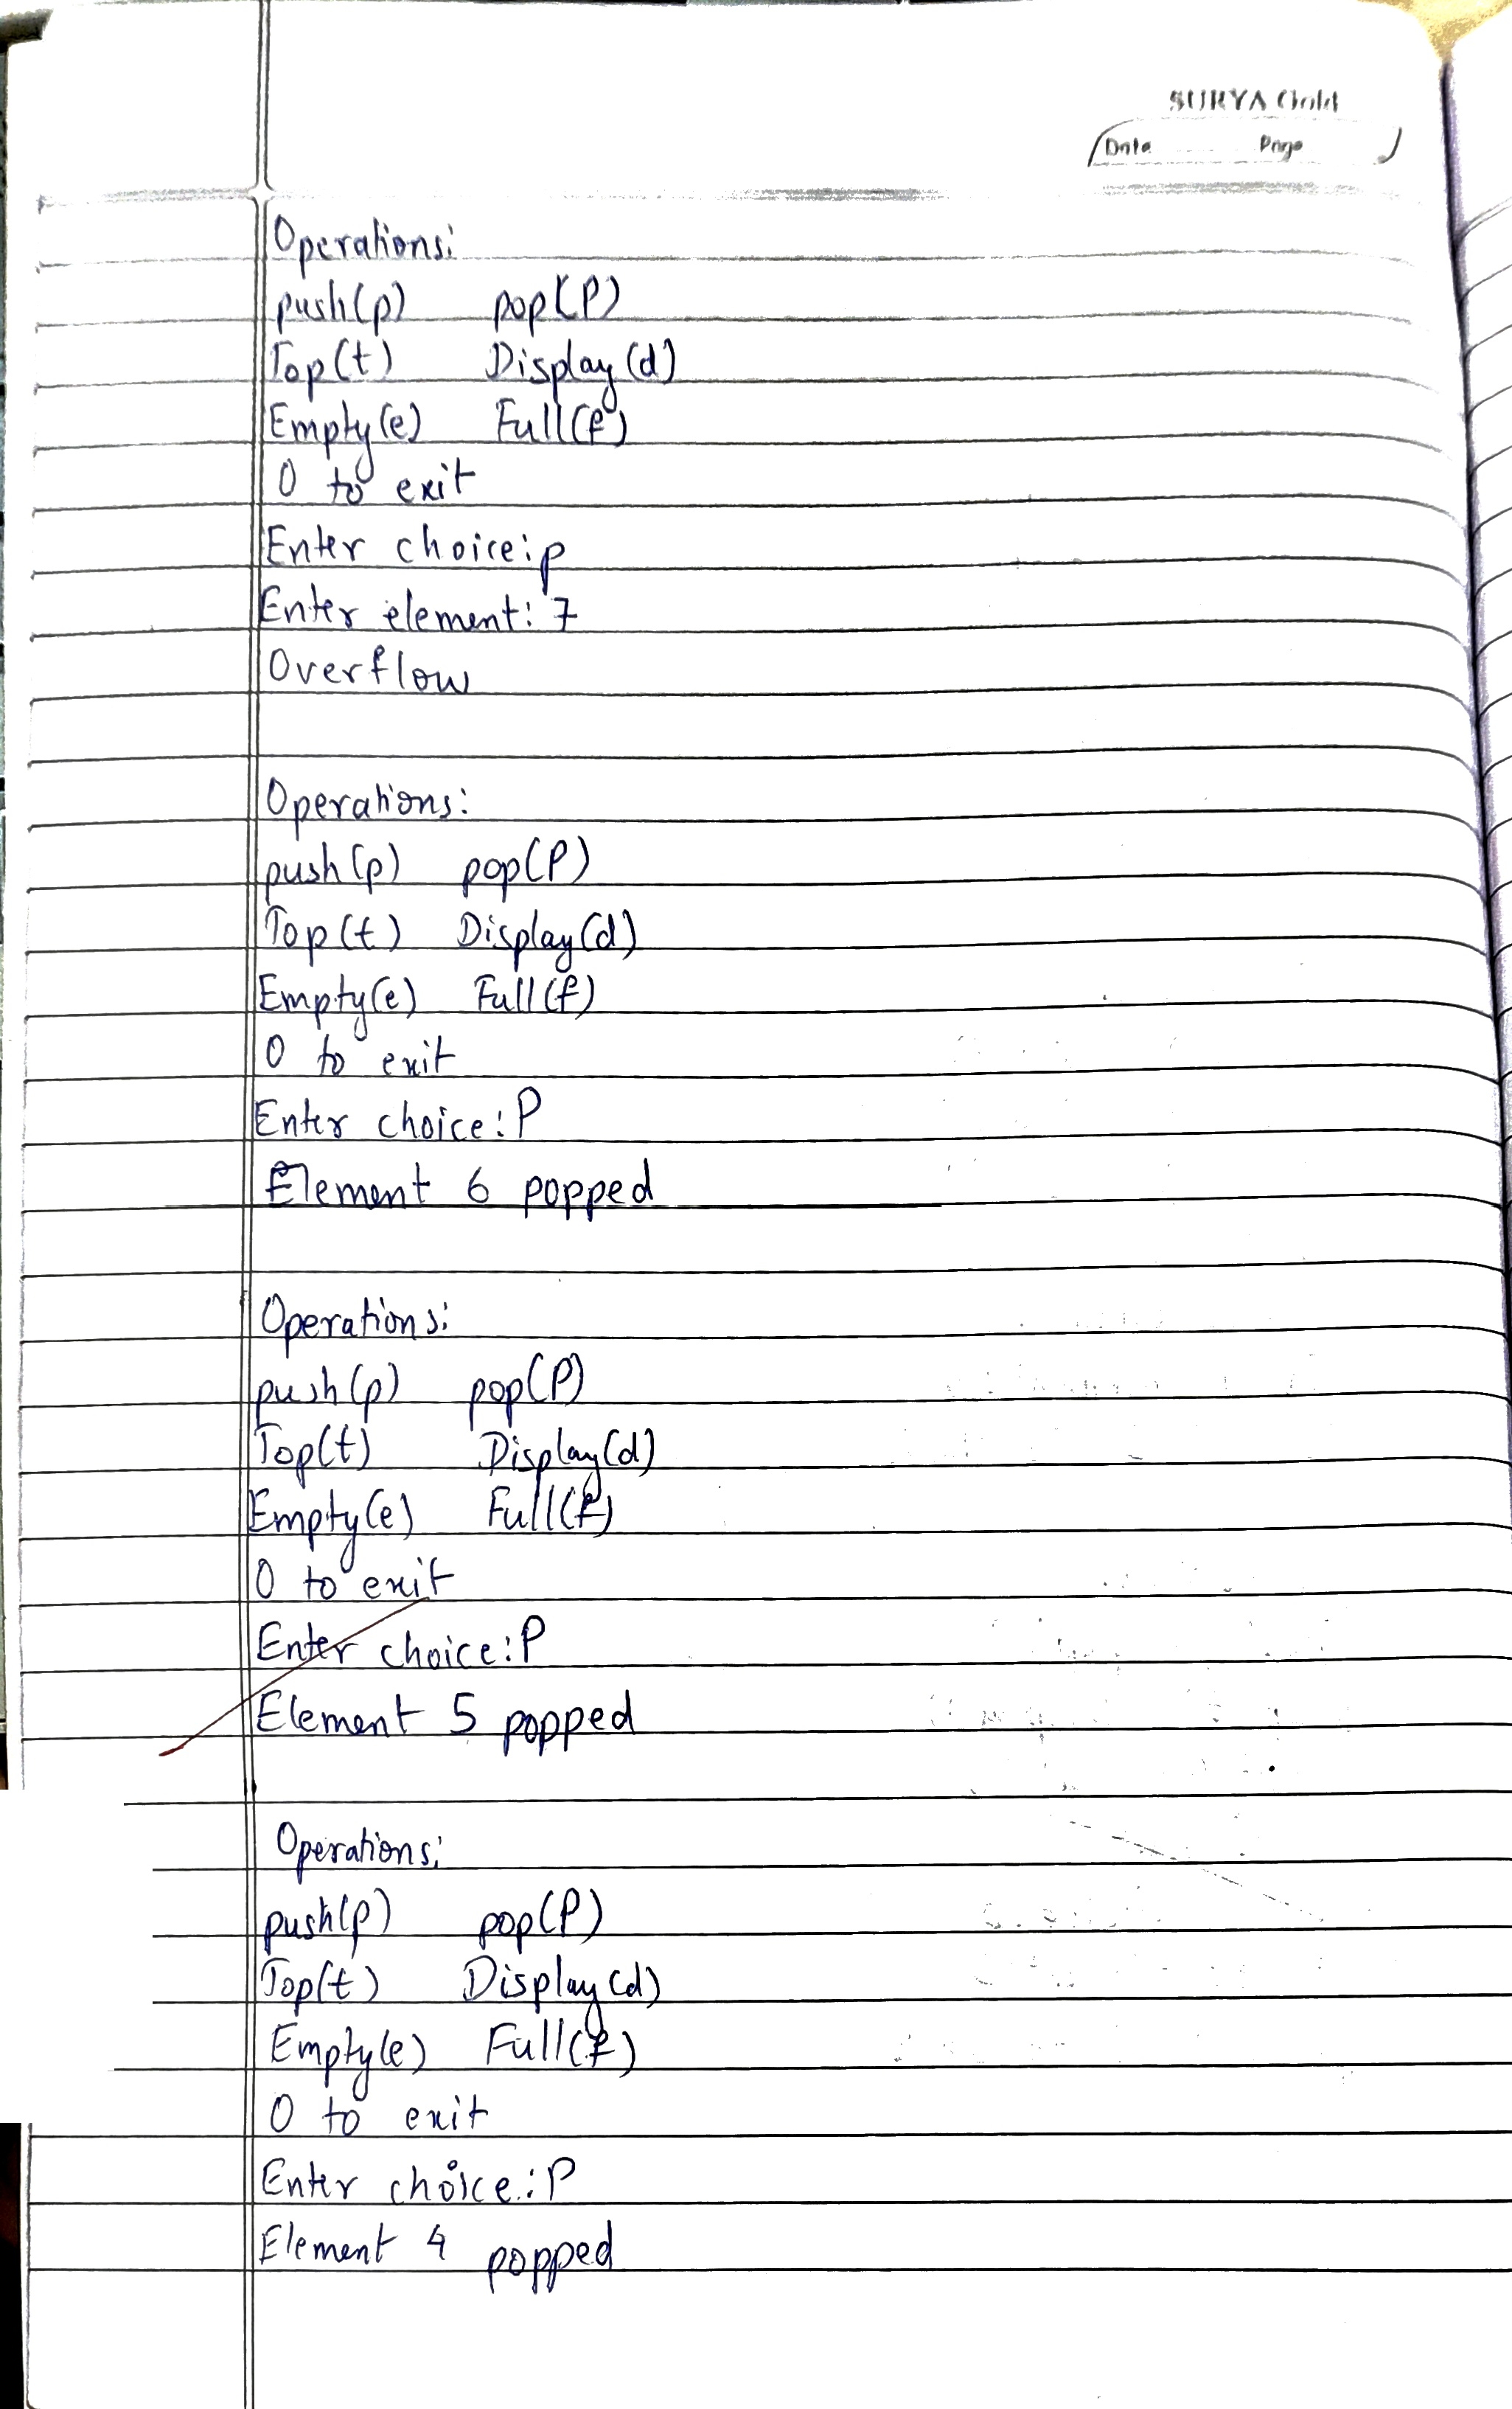 SURYA Gold
Date Page
Operations:
push(p) pop(P)
Top(t) Display(d)
Empty(e) Full(f)
0 to exit
Enter choice:p
Enter element: 7
Overflow
Operations:
push(p) pop(P)
Top(t) Display(d)
Empty(e) Full(f)
0 to exit
Enter choice: P
Element 6 popped
Operations:
push(p) pop(P)
Top(t) Display(d)
Empty(e) Full(f)
0 to exit
Enter choice: P
Element 5 popped
Operations:
push(p) pop(P)
Top(t) Display(d)
Empty(e) Full(f)
0 to exit
Enter choice: P
Element 4 popped